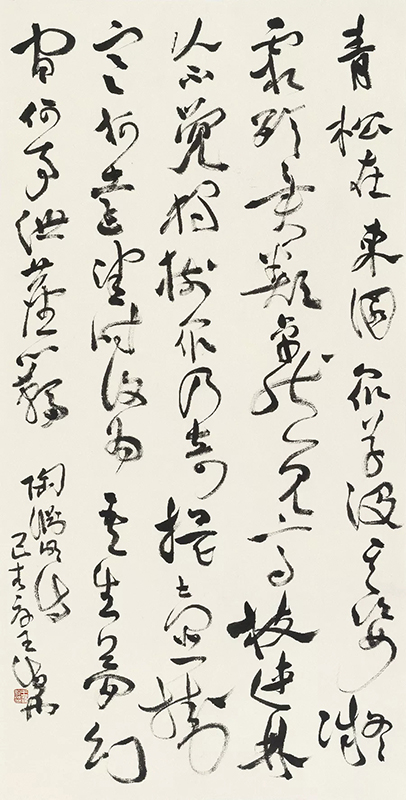 青松在東園眾草沒其姿凝
霜殄異類卓然見高枝連林
人不覺獨樹眾乃奇提壺撫
寒柯遠望時復為吾生夢幻
間何事紲塵羈
陶淵明詩